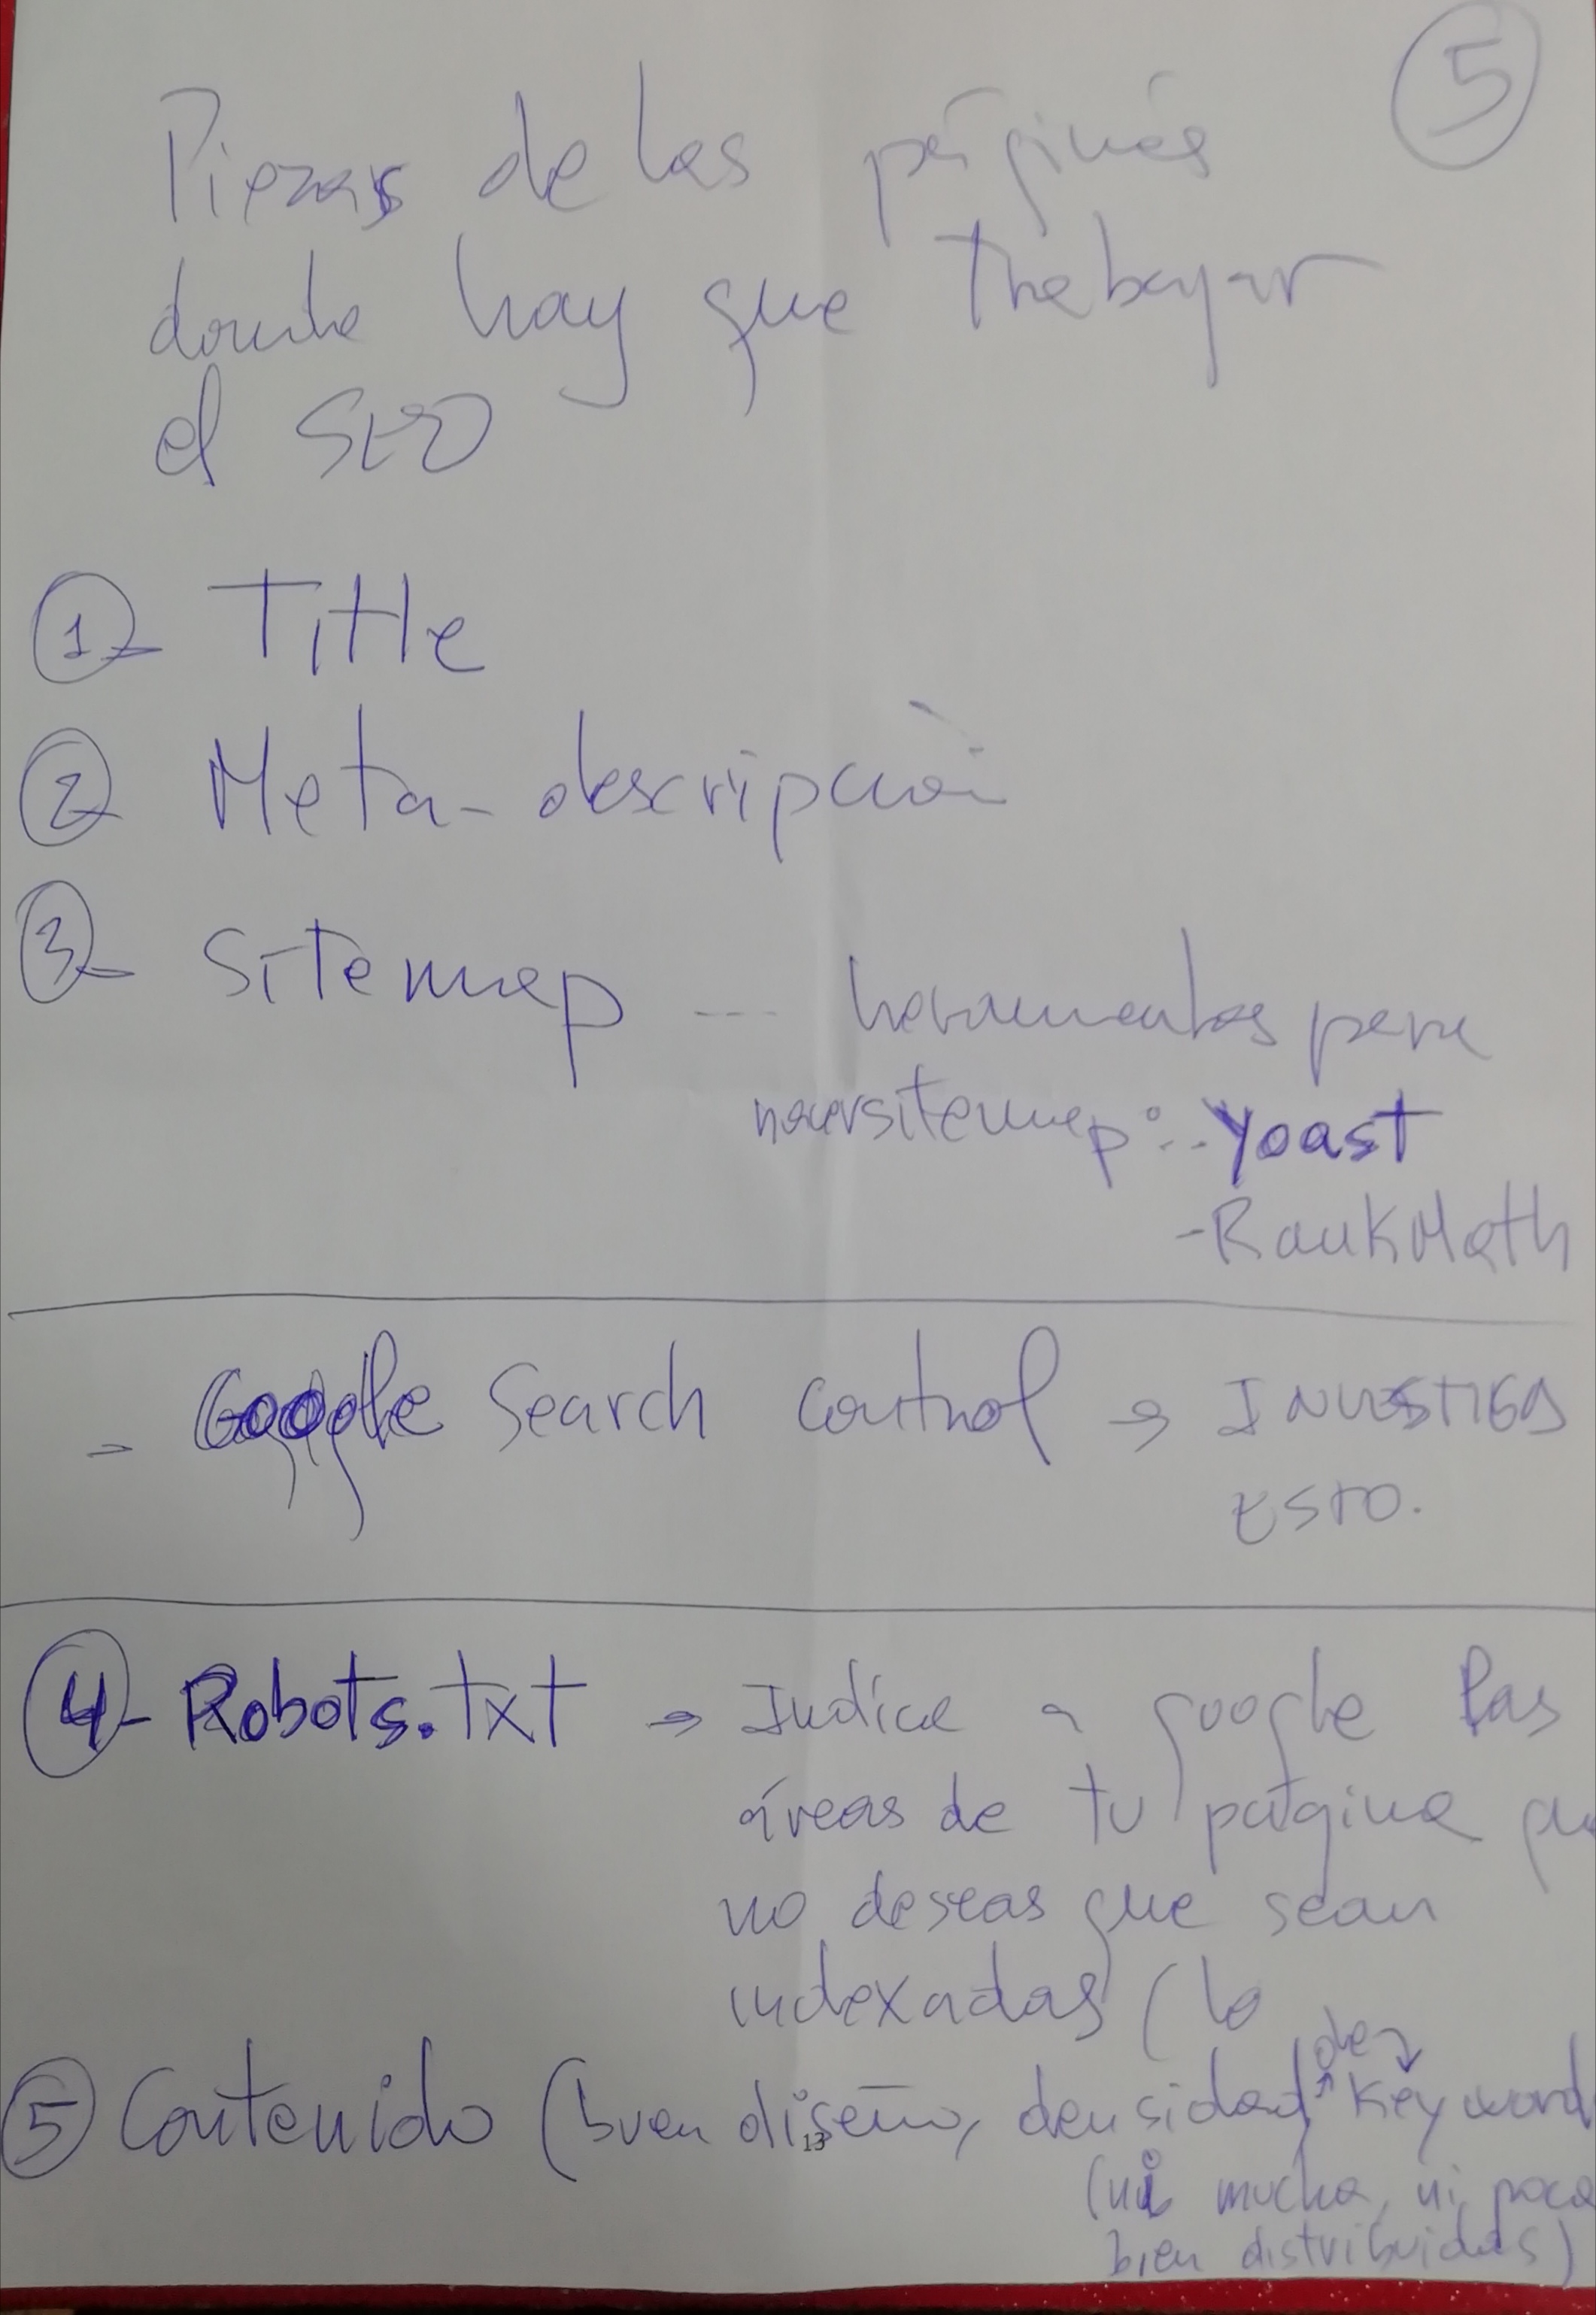 5
Piezas de las páginas
donde hay que trabajar
el SEO
1- Title
2- Meta-descripción
3- Sitemap --- herramientas para
hacer sitemap: - Yoast
- RankMath
- Google Search control → INVESTIGA
ESTO.
4- Robots.txt → Indica a google las
áreas de tu página
no deseas que sean
indexadas (lo
5 Contenido (buen diseño, densidad de keyword
(ni mucha, ni poca
bien distribuidas)
13